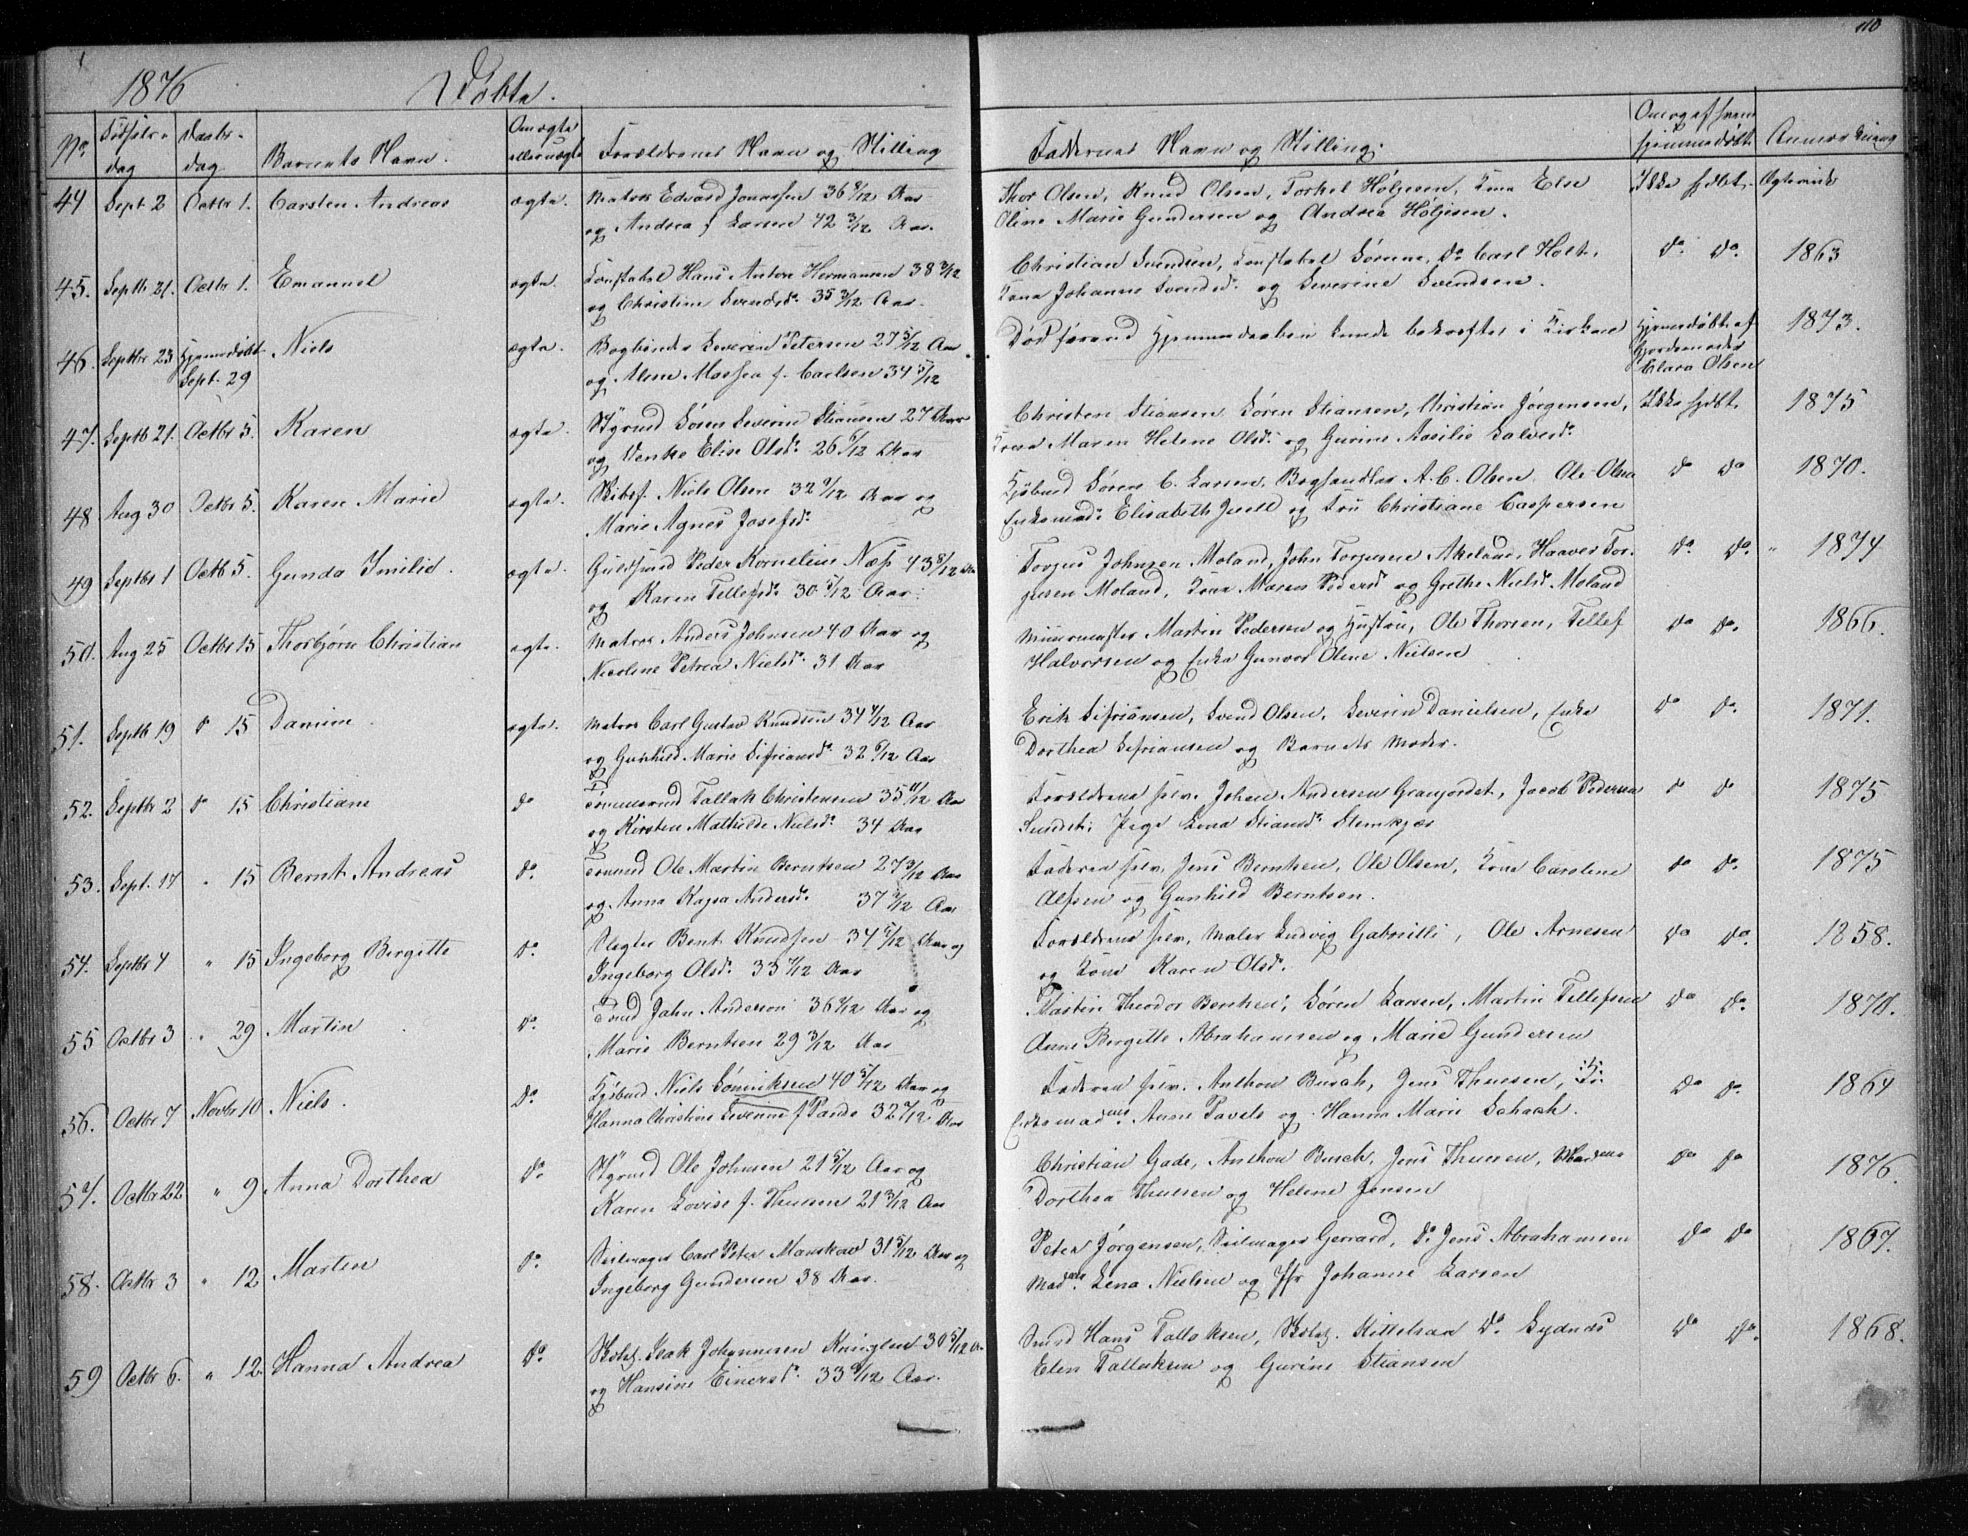 110
1876 Döbte.
No. Fødsels-dag Daabs-dag Barnets Navn. Om ægte eller uægte Forældrenes Navn og Stilling Faddernes Navn og Stilling. Om og af hvem hjemmedøbt. Anmærkning
44 Sept. 2 Octbr 1. Carsten Andreas ægte. Matros Edvard Jonassen 36 9/12 Aar Thor Olsen, Knud Olsen, Torkel Høljesen, Kone Else Ikke hjdbt.
og Andrea f Larsen 42 3/12 Aar. Oline Marie Gundersen og Andrea Høljesen.
45. Septb 21. Octbr 1. Emanuel ægte. Konstabel Hans Anton Hermansen 38 3/12 Christian Svendsen, Konstabel Sørensen, Do Carl Holt, do do 1863
og Christine Svendsd. 35 3/12 Aar. Kone Johanne Svendsd. og Severine Svendsen.
46. Septbr 23 Hjemmedøbt Sept. 29 Niels ægte. Bogbinder Severin Petersen 27 5/12 Aar Død førend Hjemmedaaben kunde bekræftes i Kirken Hjemmedøbt af Gjordemoder Clara Olsen 1873.
og Anne f. Carlsen 34 5/12
47. Septb 21. Octbr 5. Karen ægte. Styrmd Søren Severin Stiansen 27 Aar Christen Stiansen Søren Stiansen, Christian Jørgensen, Ikke hjdbt. 1875
og Venke Elise Olsd. 26 5/12 Aar Kone Maren Helene Olsd. og Gurine Aasilie Salvesd.
48 Aug 30 Octbr 5. Karen Marie ægte. Skibsf. Niels Olsen 32 9/12 Aar og Kjøbmd Søren C. Larsen. Boghandler A. C. Olsen Ole Olsen do do 1870.
Marie Agnes Josefsd. Enkemad. Elisabeth Juell og Fru Christiane Caspersen
49 Septbr 1 Octb 5. Gunda Emilie. ægte. Guldsmed Peder Kornelius Næss 43 8/12 Aar Torjus Johnsen Moland, John Torjusen Moland, Haaver Tor- do. do. 1874
og Karen Tellefsd. 30 5/12 Aar. jusen Moland, Kone Maren Pedersd og Grethe Nielsd. Moland
50. Aug 25 Octbr 15 Thorbjørn Christian ægte. Matros Anders Johnsen 40 Aar og Muurmester Martin Pedersen og Hustru, Ole Thorsen, Tellef do do. 1866.
Nicoline Petrea Nielsd. 31 Aar Halvorsen og Enke Gunvor Oline Nielsen
51. Septb 19 do 15 Damine. ægte. Matros Carl Gustav Knudsen 34 4/12 Aar Erik Sifriansen, Svend Olsen, Severin Danielsen, Enke do do. 1871.
og Gunhild Marie Sifriansd. 32 6/12 Aar Dorthea Sifriansen og Barnets Moder.
52. Septbr 2 do 15 Christiane do Tømmermd Tallak Christensen 35 11/12 Aar Forældrene selv. Johan Andersen Granjordet, Jacob Pedersen do do 1875
og Kirsten Mathilde Nielsd. 34 Aar Pige Lena Stiansd. Slemkjær
53. Sept. 17 " 15 Bernt Andreas do. Tømmd Ole Martin Berntsen 27 3/12 Aar Faderen selv. Jens Berntsen, Ole Olsen, Kone Caroline do do. 1875
og Anna Kajsa Andersd. 37 Aar Alfsen og Gunhild Berntsen.
54. Septbr 4 " 15 Ingeborg Bergitte do. Slagter Bent Knudsen 34 5/12 Aar og Forældrene selv, Maler Ludvig Gabrielli, Ole Arnesen do do. 1858.
Ingeborg Olsd. 33 Aar og Kone Karen Olsd.
55 Octbr 3 " 29 Martin do. John Anderson 36 Aar og Martin Theodor Berntsen, Søren Larsen, Martin Tellefsen do do. 1870.
Marie Berntsen 29 3/12 Aar Anne Bergitte Abrahamsen og Marie Gundersen
56. Octbr 7 Novbr 10 Niels. Do. Kjøbmd Niels Sönniksen 40 5/12 Aar og Faderen selv. Anthon Busch, Jens Thuesen, do do. 1864
Hanna Christine Severine f Pande 32 Aar Enkemad. Anne Pavels og Hanna Marie Schach.
57. Octbr 22 " 9 Anna Dorthea do. Styrmd Ole Johnsen 21 5/12 Aar og Christian Gade, Anthon Busch, Jens Thuesen, Mad do do 1876.
Karen Lovise f. Thuesen 21 3/12 Aar Dorthea Thuesen og Helene Jensen
58. Octbr 3 " 12 Martin do. Seilmager Carl Peter Manskow 31 5/12 Aar og Peter Jørgensen, Seilmager Gerrard, Do. Jens Abrahamsen do do 1867.
Ingeborg Gundersen 38 Aar. Mad. Lena Nielsen og Jfr Johanne Larsen
59 Octbr 6. " 12. Hanna Andrea do. Isak Johannesen 30 5/12 Smed Hans Tallaksen, Kittelsen Do. Lydnæs do do. 1868.
og Hansine Einersd. 33 9/12 Aar. Elen Tallaksen og Gurine Stiansen